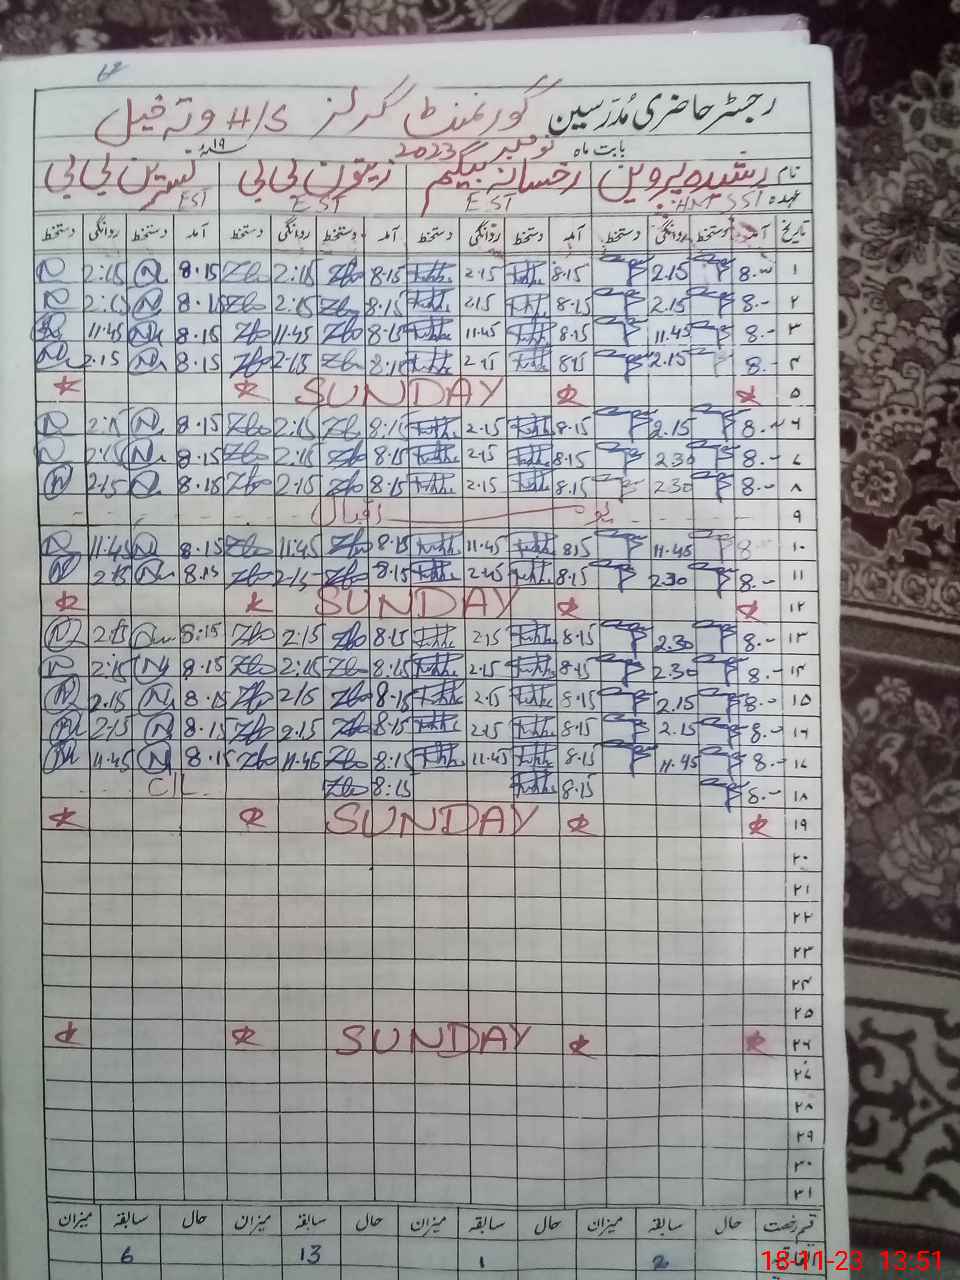 62
رجسٹر حاضری مُدرسین گورنمنٹ گرلز H/S وتہ خیل
بابت ماہ نومبر 2023 ۱۹ء
نام رشیدہ پروین رخسانہ بیگم زیتون بی بی نسرین بی بی
عہدہ HM SST EST EST EST
تاریخ آمد دستخط روانگی دستخط آمد دستخط روانگی دستخط آمد دستخط روانگی دستخط آمد دستخط روانگی دستخط
۱ 8.- 2.15 8.15 2.15 8.15 2:15 8.15 2:15
۲ 8.- 2.15 8.15 2.15 8.15 2:15 8.15 2:15
۳ 8.- 11.45 8.15 11.45 8.15 11.45 8.15 11.45
۴ 8.- 2.15 8.15 2.15 8.15 2.15 8.15 2.15
۵ SUNDAY
۶ 8.- 2.15 8.15 2.15 8.15 2:15 8.15 2:15
۷ 8.- 2.30 8.15 2.15 8.15 2:15 8.15 2:15
۸ 8.- 2.30 8.15 2.15 8.15 2.15 8.15 2.15
۹ یوم اقبال
۱۰ 8 11.45 8.15 11.45 8.15 11.45 8.15 11.45
۱۱ 8.- 2.30 8.15 2.15 8.15 2.15 8.15 2.15
۱۲ SUNDAY
۱۳ 8.- 2.30 8.15 2.15 8.15 2.15 8:15 2.15
۱۴ 8.- 2.30 8.15 2.15 8.15 2:15 8.15 2:15
۱۵ 8.- 2.15 8.15 2.15 8.15 2.15 8.15 2.15
۱۶ 8.- 2.15 8.15 2.15 8.15 2.15 8.15 2.15
۱۷ 8.- 11.45 8.15 11.45 8.15 11.45 8.15 11.45
۱۸ 8.- 8.15 8:15 C/L
۱۹ SUNDAY
۲۰
۲۱
۲۲
۲۳
۲۴
۲۵
۲۶ SUNDAY
۲۷
۲۸
۲۹
۳۰
۳۱
قسم رخصت حال سابقہ میزان حال سابقہ میزان حال سابقہ میزان حال سابقہ میزان
2 1 13 6
18-11-23 13:51